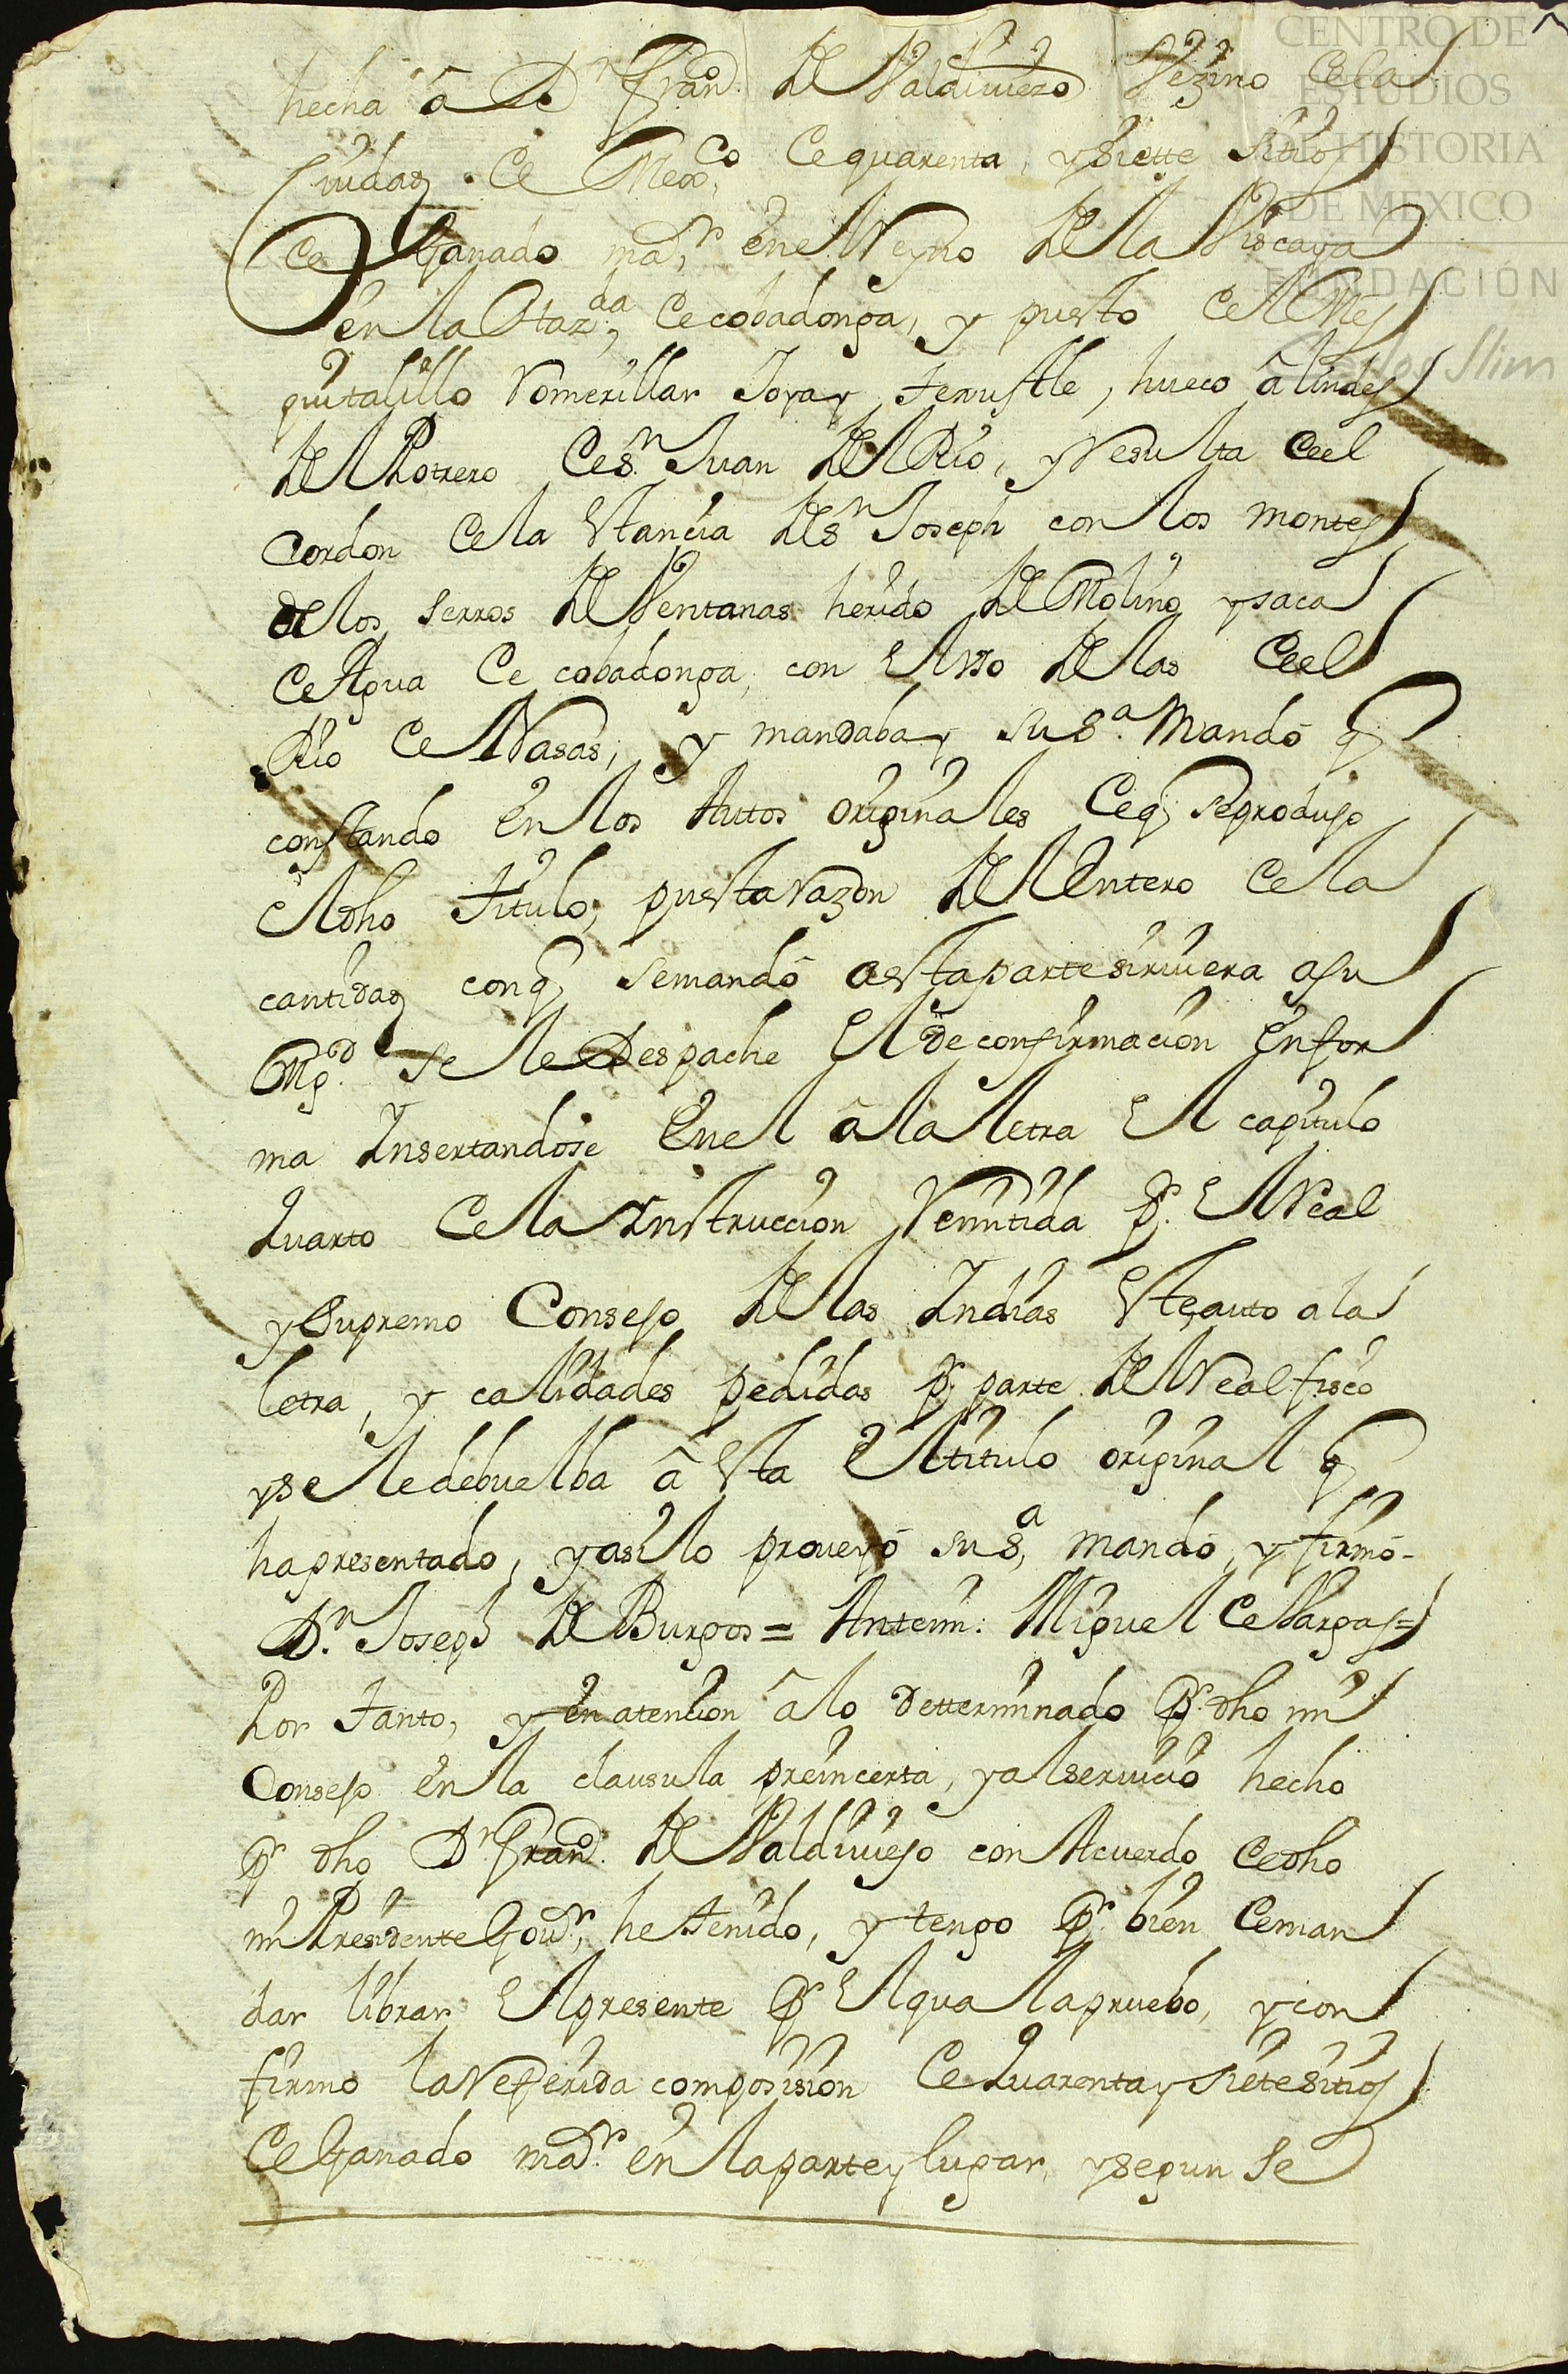 hecha â Dn. Franco. de Valdiviezo Vezino de la
Ciudad de Mexco. de quarenta, y siette sitios
de Ganado mar. en el Reyno de la Viscaya
en la Hazda. de cobadonga, y puesto del Mes
quitalillo Lomerillar Joya y tenustle, hueco â lindes
del Potrero de sn. Juan del Rio, y Resulta de el
Cordon de la Estancia de Sn. Joseph con los montes
de los serros de Ventanas herido de Molino y saca
de Agua de cobadonga, con el vso de las de el
Rio de Nasas, y mandaba y su sa. Mandó q
constando en los Autos originales de q se produjo
el dho titulo, puesta razon del Entero de la
cantidad con q se mandó a esta parte sirviera a su
Mgd. se le Despache el de confirmacion en for
ma Insertandose en el â la letra el capitulo
quarto de la Instruccion Remitida pr. el Real
y Supremo Consejo de las Indias este auto a la
letra, y calidades pedidas pr. parte del Real fisco
y se le debuelba â esta el titulo original q
ha presentado, y asi lo proveyó su sa, mandó, y firmó-
Dn. Joseph de Burgos = Antemi: Miguel de Vargas=
Por tanto, y en atencion â lo Detterminado pr. dho mi
Consejo en la clausula preincerta, y al servicio hecho
pr dho Dn Franco. de Valdiviejo con Acuerdo de dho
mi Presidente Govr, he tenido, y tengo pr. bien de man
dar librar el presente pr el qual apruebo, y con
firmo la Referida composision de quarenta y siete sitios
de Ganado mar. en la parte y lugar, y segun se
CENTRO DE
ESTUDIOS
DE HISTORIA
DE MEXICO
FUNDACIÓN
Carlos Slim